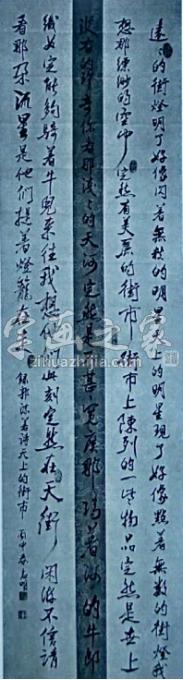 遠〻的街燈明了好像闪着無数的明星天上的明星現了好像點着無數的街燈我
想那缥缈的空中定然有美麗的街市街市上陳列的一些物品定然是世上
没有的珍奇你看那淺〻的天河定然是不甚寬廣那隔着河的牛郎
織女定能夠騎着牛兒来往我想他們此刻定然在天街闲游不信請
看那朵流星是他們提着燈籠在走 錄郭沫若詩天上的街市 丙申春
字画之家
zihuazhijia.com